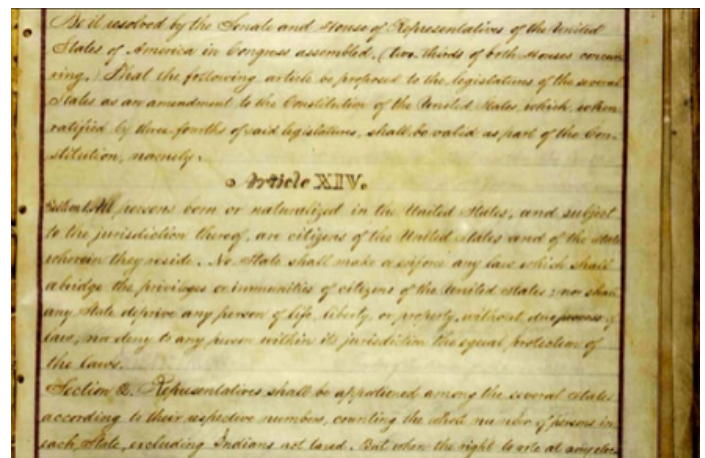 Be it resolved by the Senate and House of Representatives of the United
States of America in Congress assembled, (two thirds of both Houses concur
ring,) That the following article be proposed to the legislatures of the several
States as an amendment to the Constitution of the United States, which, when
ratified by three-fourths of said legislatures, shall be valid as part of the Con-
stitution, namely:
Article XIV.
Section 1. All persons born or naturalized in the United States, and subject
to the jurisdiction thereof, are citizens of the United States and of the State
wherein they reside. No State shall make or enforce any law which shall
abridge the privileges or immunities of citizens of the United States; nor shall
any State deprive any person of life, liberty, or property, without due process of
law, nor deny to any person within its jurisdiction the equal protection of
the laws.
Section 2. Representatives shall be apportioned among the several States
according to their respective numbers, counting the whole number of persons in
each State, excluding Indians not taxed. But when the right to vote at any elec